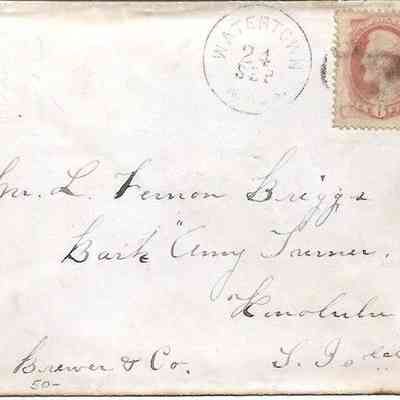 WATERTOWN
24
SEP
Mr. L. Vernon Briggs
Bark "Amy Turner,
Honolulu
Brewer & Co.
S. I
50-